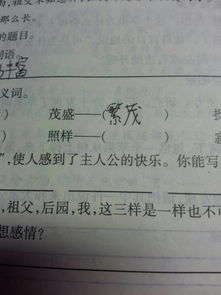 那么长。
的题目。
词语。
丰富
义词。
) 茂盛——(繁茂)
) 照样——(
”,使人感到了主人公的快乐。你能写
,祖父,后园,我,这三样是一样也不可
想感情?